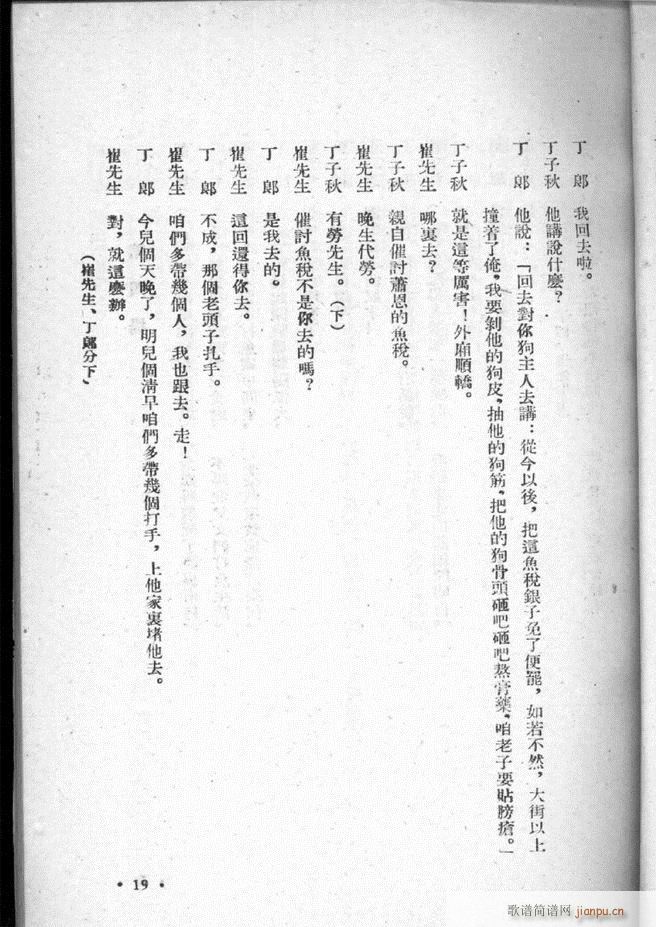 丁　郎　我回去啦。
丁子秋　他講說什麼？
丁　郎　他說：「回去對你狗主人去講：從今以後，把這魚稅銀子免了便罷，如若不然，大街以上
撞着了俺，我要剝他的狗皮，抽他的狗筋，把他的狗骨頭砸吧砸吧熬膏藥，咱老子要貼膀瘡。」
丁子秋　就是這等厲害！外廂順轎。
崔先生　哪裏去？
丁子秋　親自催討蕭恩的魚稅。
崔先生　晚生代勞。
丁子秋　有勞先生。（下）
崔先生　催討魚稅不是你去的嗎？
丁　郎　是我去的。
崔先生　這回還得你去。
丁　郎　不成，那個老頭子扎手。
崔先生　咱們多帶幾個人，我也跟去。走！
丁　郎　今兒個天晚了，明兒個清早咱們多帶幾個打手，上他家裏堵他去。
崔先生　對，就這麽辦。
（崔先生、丁郎分下）
• 19 •
歌谱简谱网 jianpu.cn